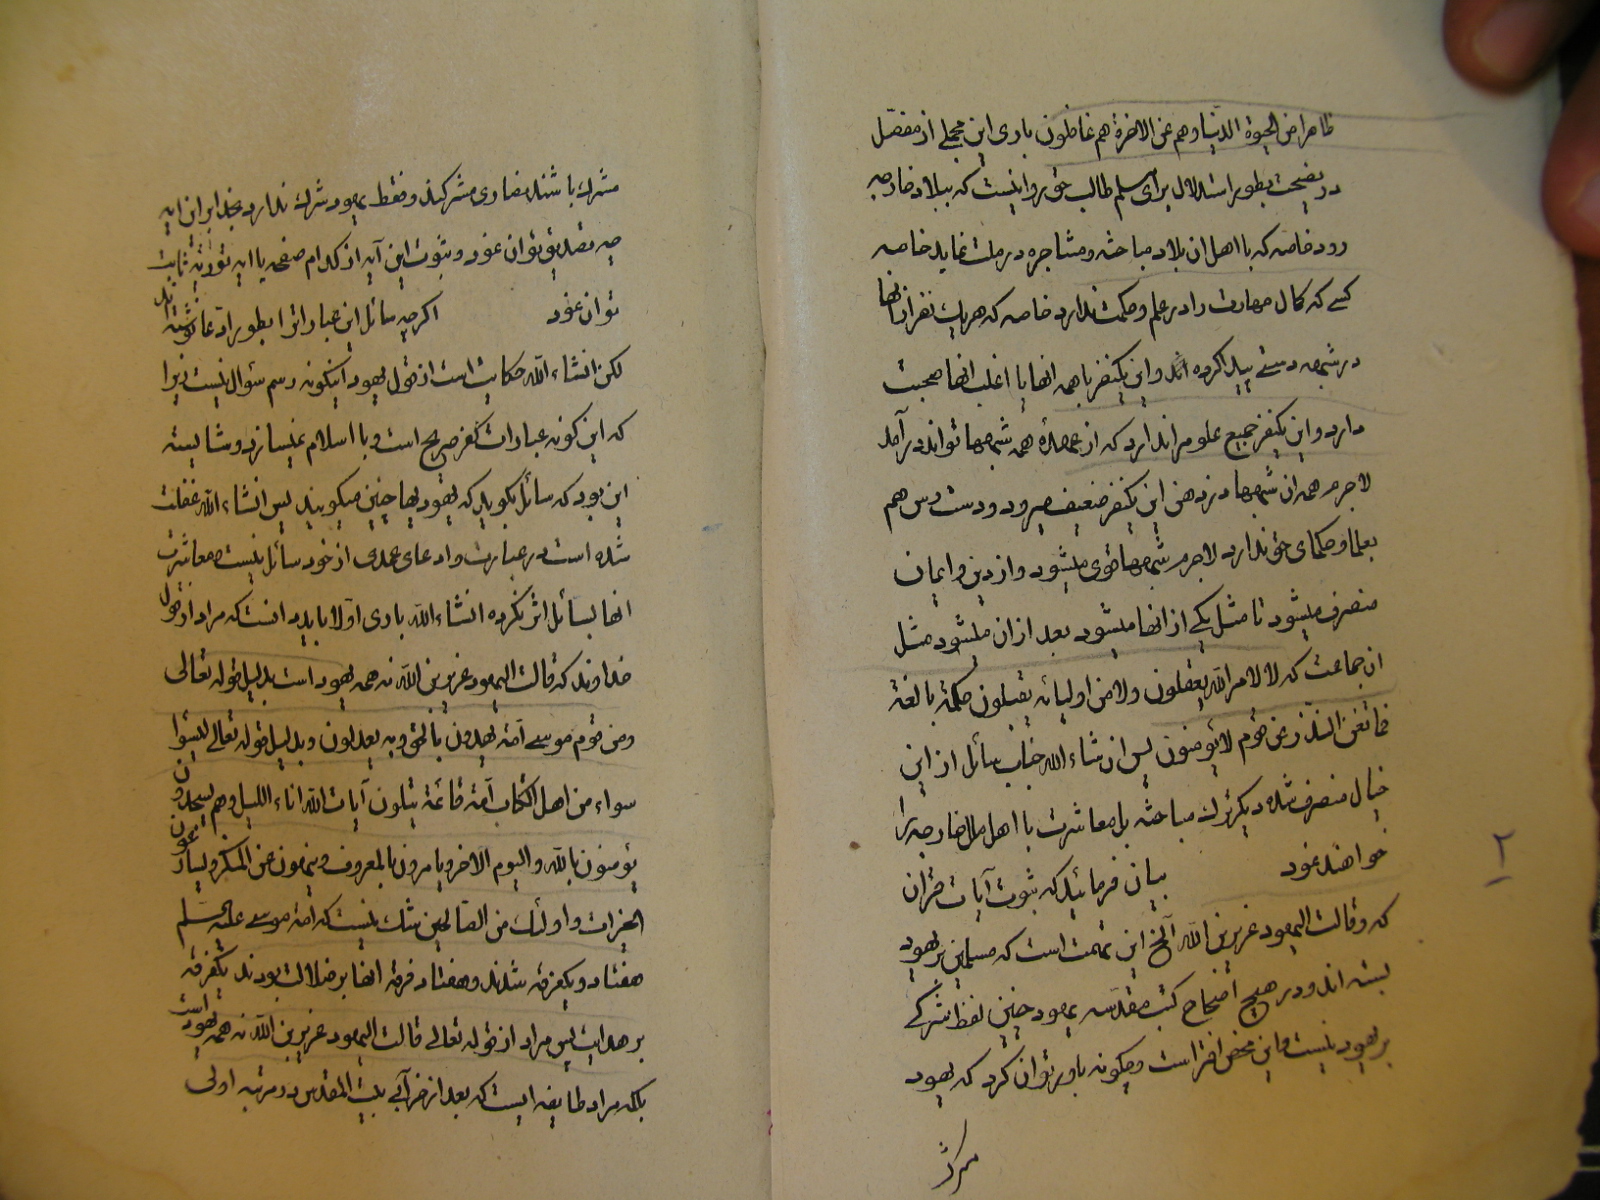 ظاهرا من الحیوة الدنیا و هم عن الاخرة هم غافلون باری این مجملی از مفصل
در نصیحت بطور استدلال برای مسلم طالب حق بر واینست که ببلاد خارجه
رود خاصه که با اهل ان بلاد مباحثه و مشاجره در ملت نماید خاصه
کسی که کمال مهارت را در علم و حکمت ندارد خاصه که هر یک نفر از انها
در شبهه دستی پیدا کرده اند و این یکنفر با همه انها یا اغلب انها صحبت
دارد و این یکنفر جمیع علوم را ندارد که از عهده همه شبهها تواند در آمد
لاجرم همه ان شبهها در ذهن این یکنفر ضعیف میرود و دست رس هم
بعلما و حکمای حق ندارد لاجرم شبهها قوی میشود و از دین و ایمان
منصرف میشود تا مثل یکی از انها میشود بعد از ان میشود مثل
ان جماعت که لا لامر الله یعقلون ولا من اولیائه یقبلون حکمة بالغة
فما تغن النذر عن قوم لایؤمنون پس ان شاء الله جناب سائل از این
خیال منصرف شده دیگر ترک مباحثه بل معاشرت با اهل ملل خارجه را
خواهند نمود بیان فرمائید که ثبوت آیات قران
که و قالت الیهود عزیر بن الله الخ این تهمت است که مسلمین بر یهود
بسته اند و در هیچ کتب مقدسه یهود چنین لفظ شرکی
بر یهود نیست و این محض افتراست و چگونه باور توان کرد که یهود
مشرک
۲
مشرک باشند نصاری مشرکند و فقط یهود شرک ندارد بخدا بر این ایه
چه تصدیق توان نمود و ثبوت این آیه از کدام صفحه یا ایه توریة ثابت
توان نمود اگرچه سائل این عبارات را بطور ادعا نوشته اند
لکن انشاء الله حکایت است از قول یهود اینگونه رسم سؤال نیست زیرا
که این گونه عبارات کفر صریح است و با اسلام نمیسازد و شایسته
این بود که سائل بگوید که یهودیها چنین میگویند پس انشاء الله غفلت
شده است در عبارت و ادعای عمدی از خود سائل نیست و معاشرت
انها بسائل اثر نکرده انشاء الله باری اولا باید دانست که مراد از قول
خداوند که قالت الیهود عزیر بن الله نه همه یهود است بدلیل قوله تعالی
و من قوم موسی امة یهدون بالحق و به یعدلون و بدلیل قوله تعالی لیسوا
سواء من اهل الکتاب امة قائمة یتلون آیات الله اناء اللیل و هم یسجدون
یؤمنون بالله و الیوم الاخر و یامرون بالمعروف و ینهون عن المنکر و یسارعون
الخیرات و اولئک من الصالحین شک نیست که امة موسی علیه السلم
هفتاد و یکفرقه شدند و هفتاد فرقه انها بر ضلالت بودند یکفرقه
بر هدایت پس مراد از قوله تعالی قالت الیهود عزیر بن الله نه همه یهود است
بلکه مراد طایفه ایست که بعد از خرابی بیت المقدس در مرتبه اولی